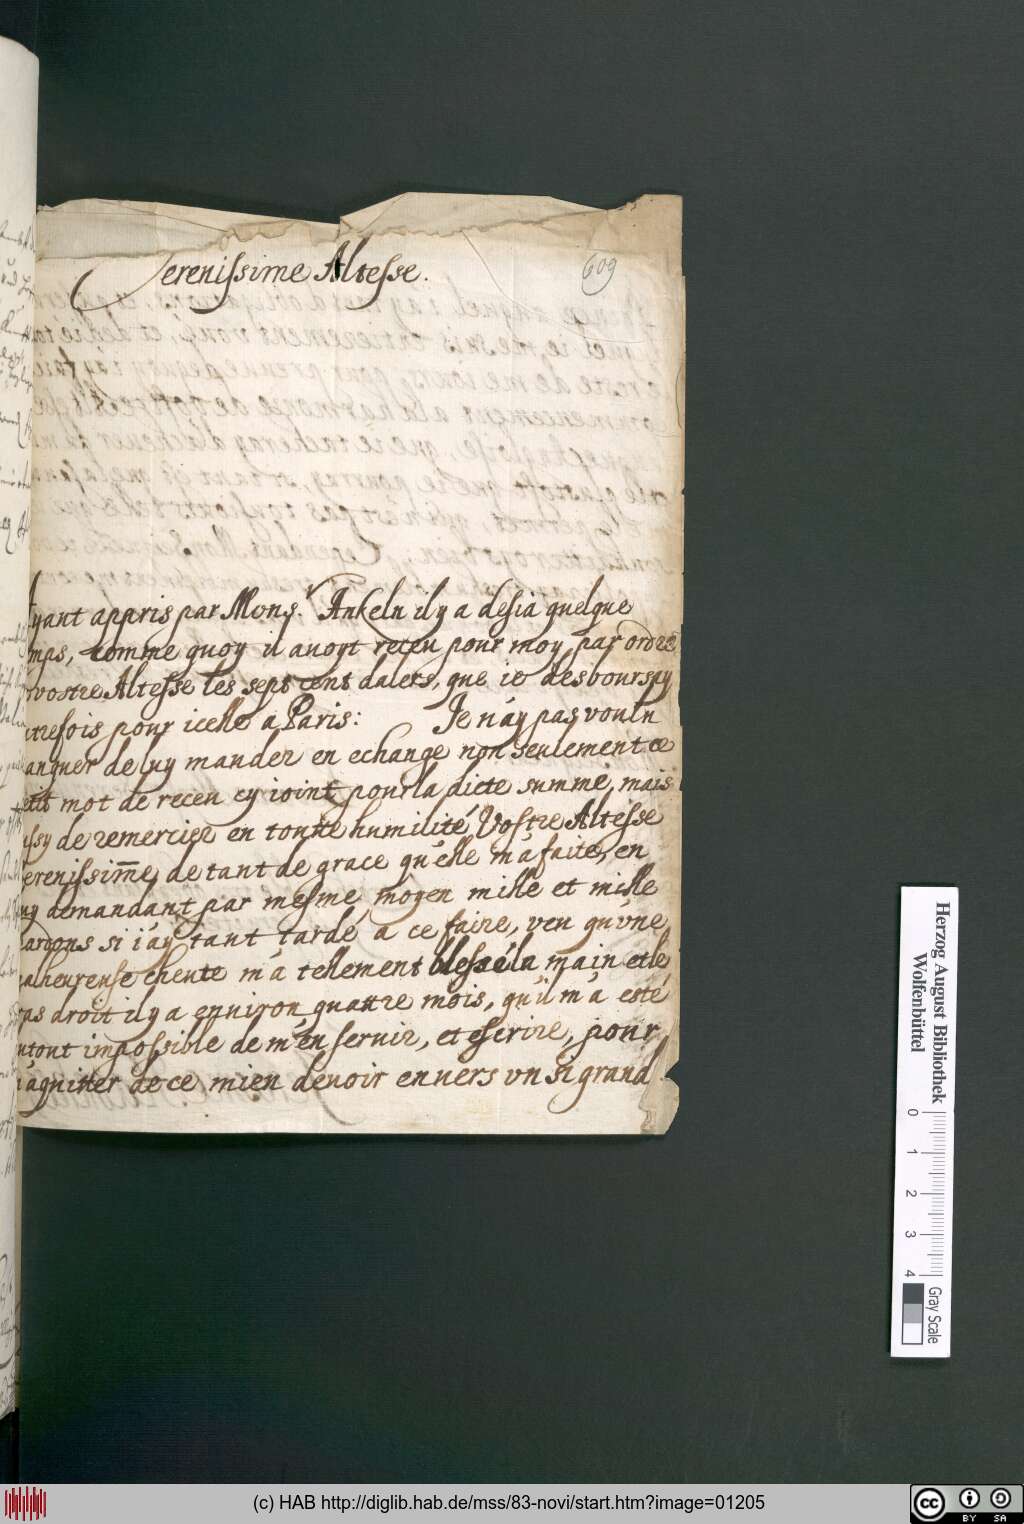 Serenissime Altesse.
609
Ayant appris par Mons.r Ankeln il y a desia quelque
mps, comme quoy il auoyt receu pour moy par ordre
vostre Altesse les sept cent dalers, que ie desboursay
trefois pour icelle a Paris: Je n'ay pas voulu
anquer de luy mander en echange non seulement ce
etit mot de receu cy ioint pour la dicte summe, mais
ussy de remercier en toutte humilité Vostre Altesse
erenissime de tant de grace qu'elle m'a faite, en
uy demandant par mesme moyen mille et mille
ardons si i'ay tant tardé a ce faire, veu qu'vne
alheureuse cheute m'a tellement blessé la main et le
as droit il y a enuiron quattre mois, qu'il m'a esté
utout impossible de m'en seruir, et escrire, pour
'aquitter de ce mien deuoir enuers vn si grand
Herzog August Bibliothek
Wolfenbüttel
0 1 2 3 4
Gray Scale
(c) HAB http://diglib.hab.de/mss/83-novi/start.htm?image=01205
cc BY SA